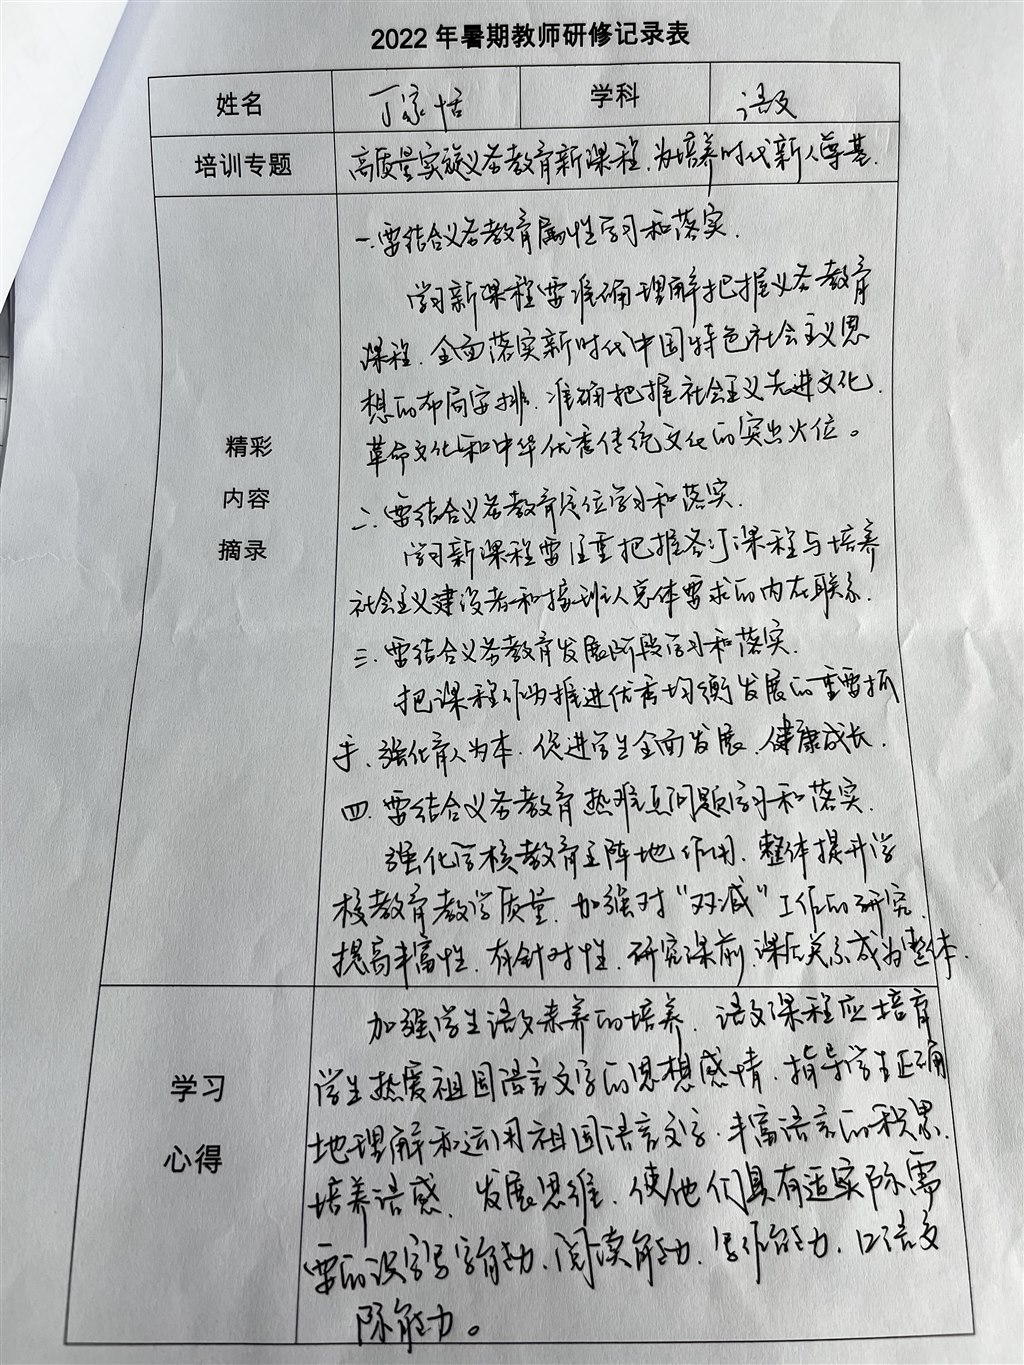 2022 年暑期教师研修记录表
姓名 丁家恬 学科 语文
培训专题 高质量实施义务教育新课程,为培养时代新人奠基.
精彩
内容
摘录
一.要结合义务教育属性学习和落实.
学习新课程要准确理解把握义务教育
课程.全面落实新时代中国特色社会主义思
想的布局安排.准确把握社会主义先进文化.
革命文化和中华优秀传统文化的突出地位。
二.要结合义务教育定位学习和落实.
学习新课程要注重把握各门课程与培养
社会主义建设者和接班人总体要求的内在联系.
三.要结合义务教育发展阶段学习和落实.
把课程作为推进优秀均衡发展的重要抓
手、强化育人为本.促进学生全面发展、健康成长.
四.要结合义务教育热难点问题学习和落实.
强化学校教育主阵地作用.整体提升学
校教育教学质量.加强对“双减”工作的研究.
提高丰富性.有针对性.研究课前,课后关系成为整体.
学习
心得
加强学生语文素养的培养.语文课程应培育
学生热爱祖国语言文字的思想感情.指导学生正确
地理解和运用祖国语言文字.丰富语言的积累.
培养语感.发展思维.使他们具有适实际需
要的识字写字能力、阅读能力.写作能力.口语交
际能力。